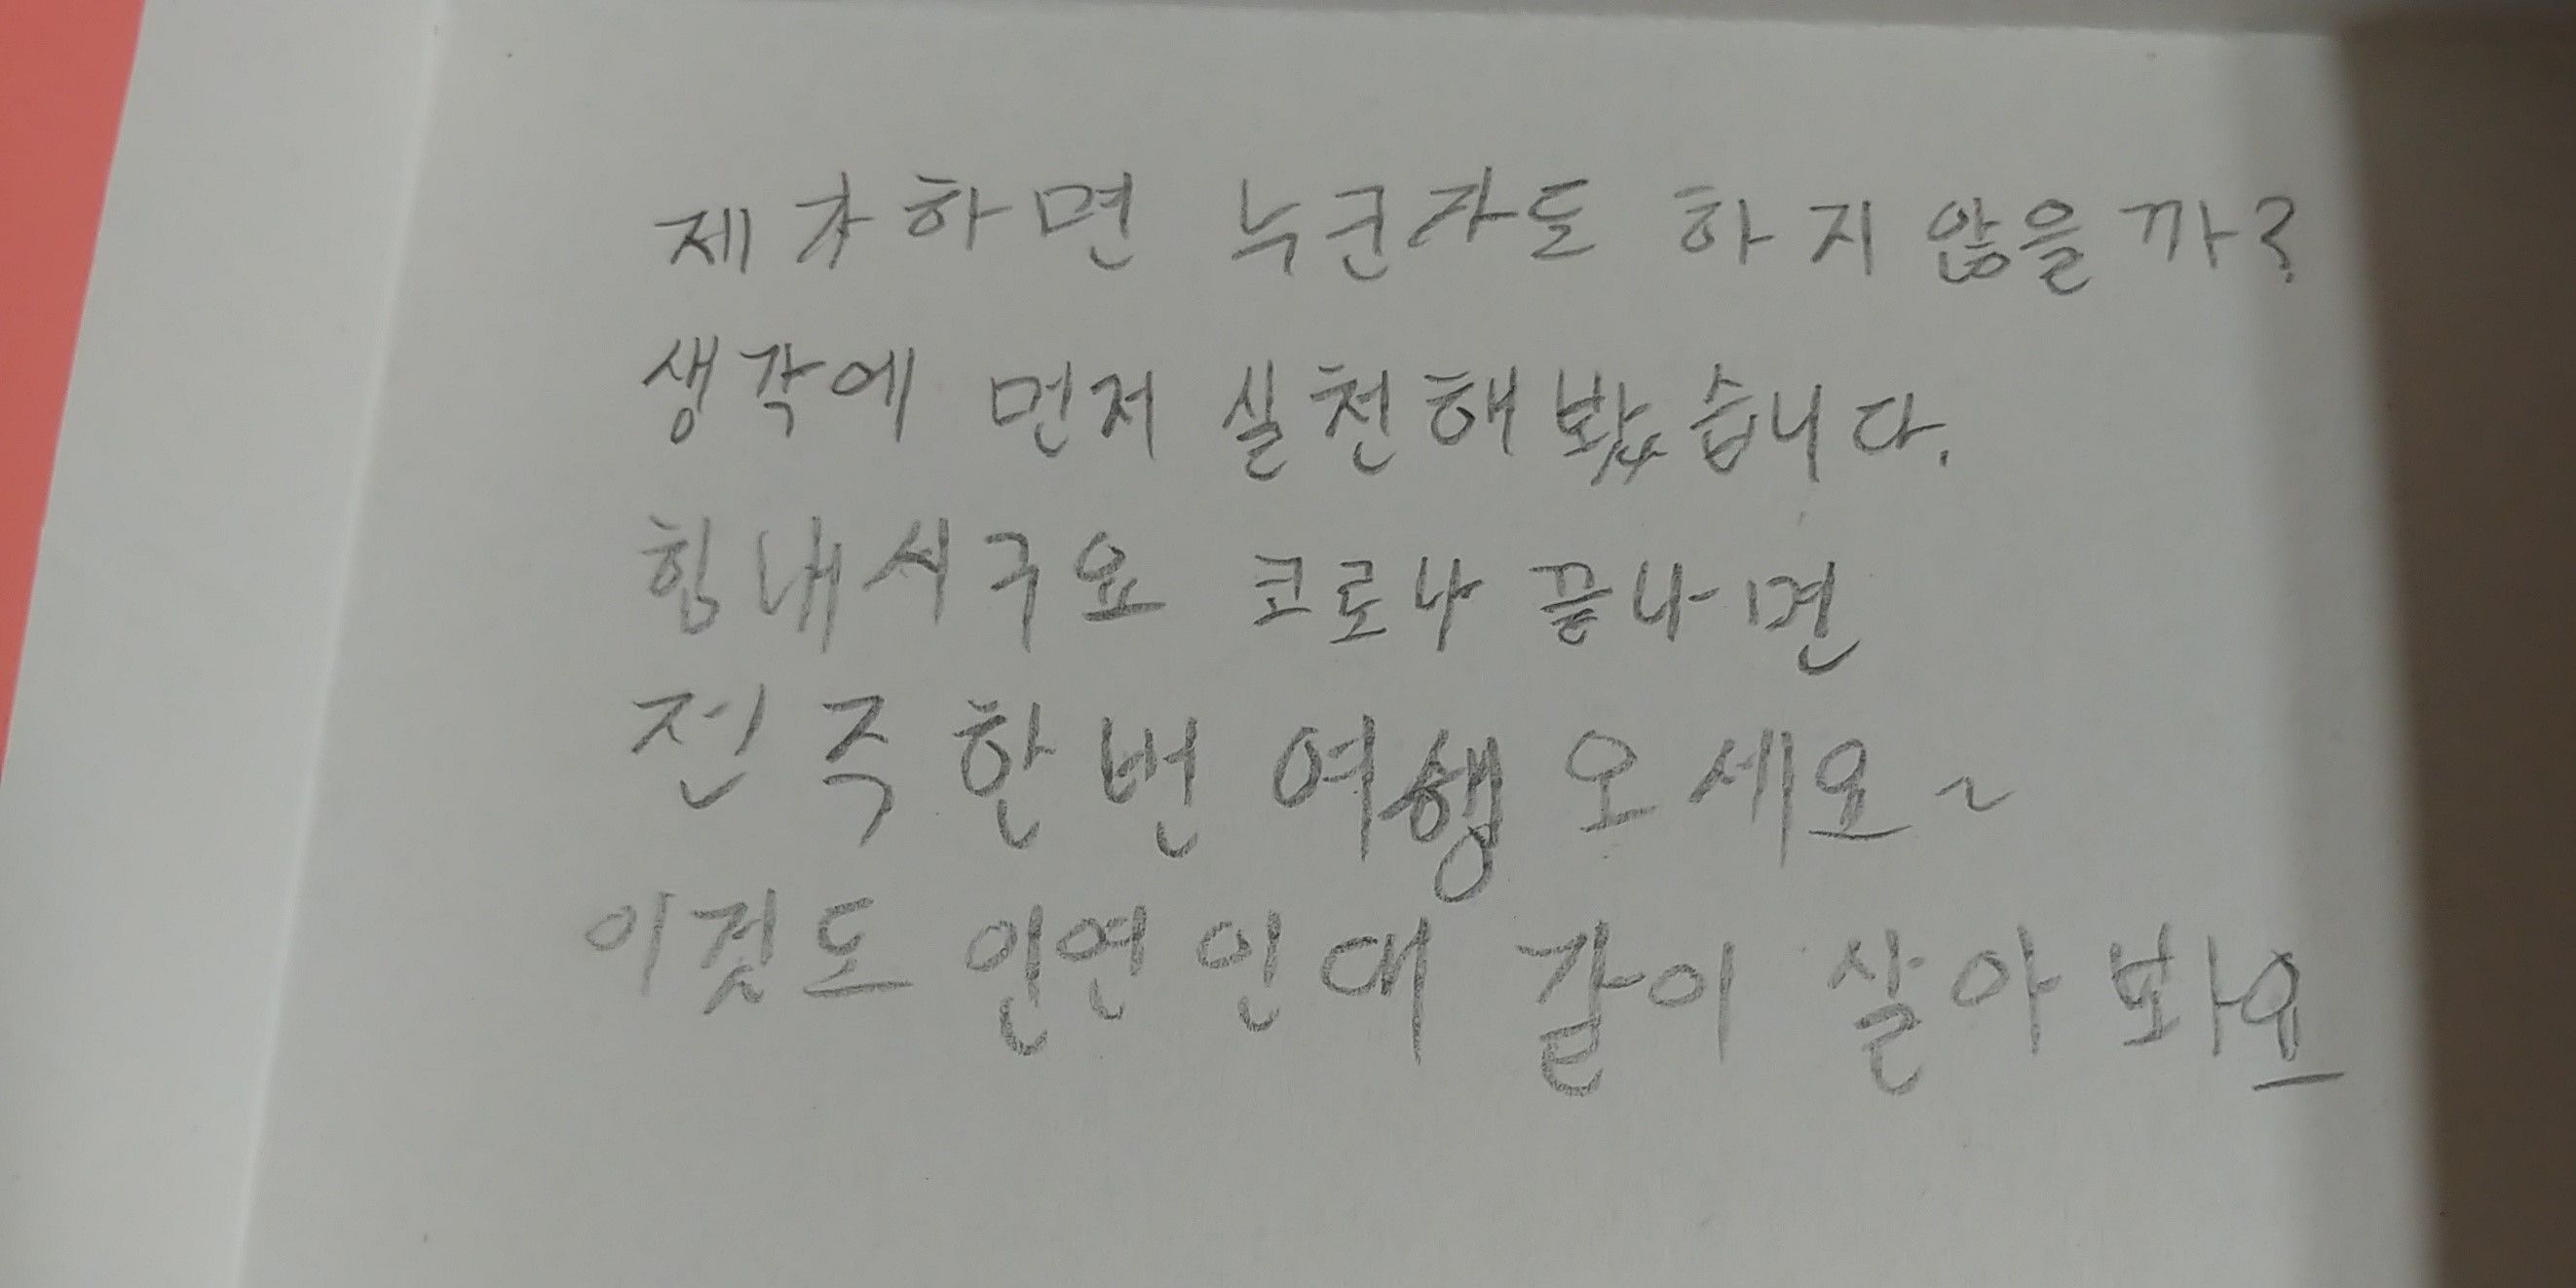 제가하면 누군가도 하지않을까?
생각에 먼저 실천해봤습니다.
힘내시구요 코로나 끝나면
전주한번 여행오세요~
이것도 인연인대 같이 살아봐요